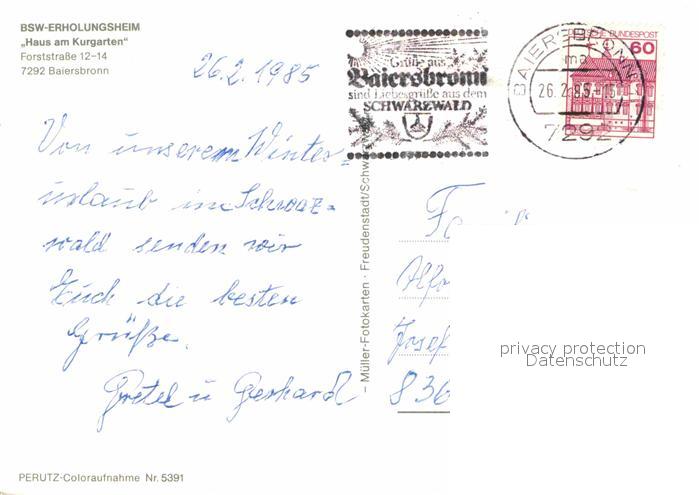 BSW-ERHOLUNGSHEIM
„Haus am Kurgarten“
Forststraße 12–14
7292 Baiersbronn
26.2.1985
Grüße aus
Baiersbronn
sind Liebesgrüße aus dem
SCHWARZWALD
BAIERSBRONN
26.2.85.-15
7292
DEUTSCHE BUNDESPOST
60
Von unserem Winter-
urlaub im Schwarz-
wald senden wir
Euch die besten
Grüße.
Gretel u Gerhard
– Müller-Fotokarten · Freudenstadt/Schw
Alfo
Josef
836
privacy protection
Datenschutz
PERUTZ-Coloraufnahme Nr. 5391